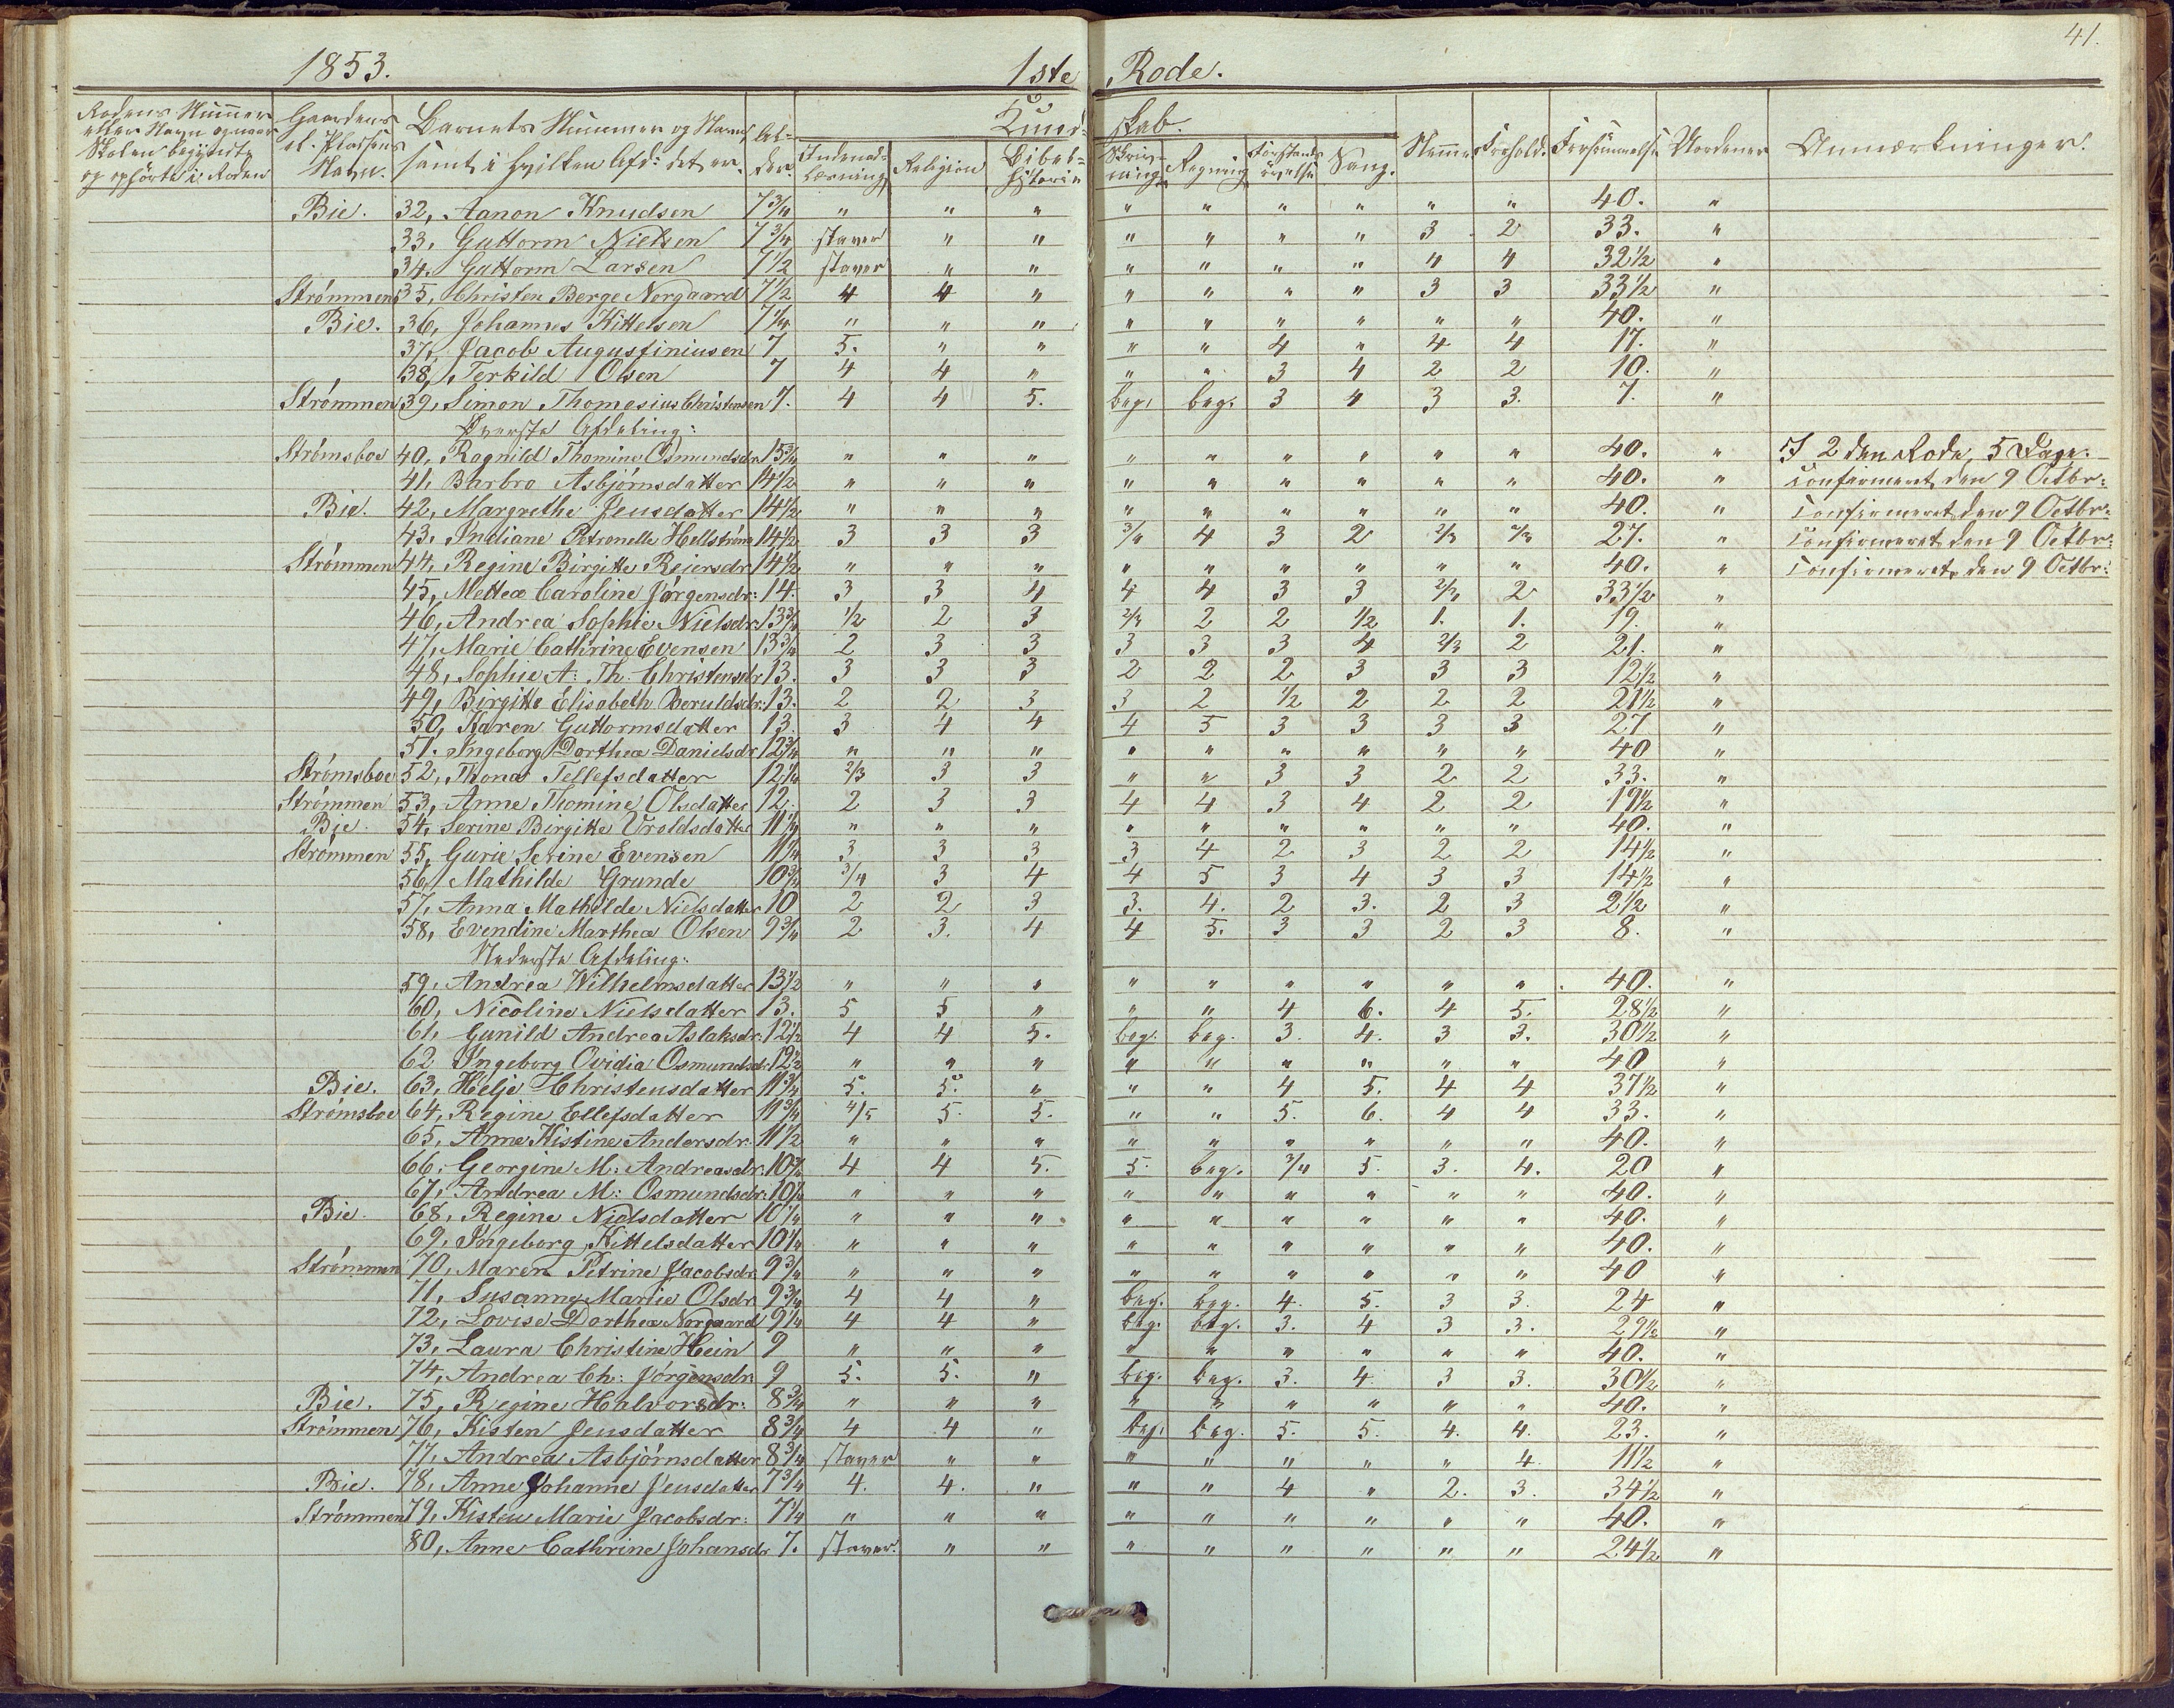 41.
1853. 1ste Rode.
Rodens Nummer eller Navn og naar Skolen begyndte og ophørte i Roden
Gaardens el. Pladsens Navn.
Barnets Nummer og Navn, samt i hvilken Afd: det er.
Al-der.
Kund-skab.
Indenad-læsning Religion Bibel-historie Skriv-ning Regning Forstands-øvelse Sang.
Nemme Forhold. Forsømmelse Uordener Anmærkninger.
Bie. 32, Aanon Knudsen 7 3/4 " " " " " " " " " 40. "
33, Guttorm Nielsen 7 3/4 staver " " " " " " 3 2 33. "
34. Guttorm Larsen 7 1/2 staver " " " " " " 4 4 32 1/2 "
Strømmen 35, Christen Berge Norgaard 7 1/2 4 4 " " " " " 3 3 33 1/2 "
Bie. 36, Johannes Kittelsen 7 1/4 " " " " " " " " " 40. "
37, Jacob Augustiniusen 7 5. " " " " 4 " 4 4 17. "
38, Terkild Olsen 7 4 4 " " " 3 4 2 2 10. "
Strømmen 39, Simon Thomesius Christensen 7. 4 4 5. beg. beg. 3 4 3 3. 7. "
Øverste Afdeling:
Strømsboe 40, Ragnild Thomine Osmundsdr 15 3/4 " " " " " " " " " 40. " I 2den Rode 5 Dage.
41, Barbro Asbjørnsdatter 14 1/2 " " " " " " " " " 40. " Confirmeret den 9 Octbr:
Bie. 42, Margrethe Jensdatter 14 1/2 " " " " " " " " " 40. " Confirmeret den 9 Octbr:
43. Indiane Petronelle Hellstrøm 14 1/2 3 3 3 3/4 4 3 2 2/3 2/3 27. " Confirmeret den 9 Octbr:
Strømmen 44, Regine Birgitte Reiersdr 14 1/2 " " " " " " " " " 40. " Confirmeret den 9 Octbr:
45, Mettea Caroline Jørgensdr: 14. 3 3 4 4 4 3 3 2/3 2 33 1/2 "
46, Andrea Sophie Nielsdr 13 3/4 1/2 2 3 2/3 2 2 1/2 1. 1. 19. "
47, Marie Cathrine Evensen 13 3/4 2 3 3 3 3 3 4 2/3 2 21. "
48, Sophie A: Th: Christensdr 13. 3 3 3 2 2 2 3 3 3 12 1/2 "
49, Birgitte Elisabeth Beruldsdr: 13. 2 2 3 3 2 1/2 2 2 2 21 1/2 "
50, Karen Guttormsdatter 13 3 4 4 4 5 3 3 3 3 27 "
51. Ingeborg Dorthea Danielsdr 12 3/4 " " " " " " " " " 40 "
Strømsboe 52, Thona Tellefsdatter 12 1/4 2/3 3 3 " " 3 3 2 2 33. "
Strømmen 53, Anne Thomine Olsdatter 12. 2 3 3 4 4 3 4 2 2 19 1/2 "
Bie. 54, Serine Birgitte Uroldsdatter 11 1/4 " " " " " " " " " 40. "
Strømmen 55, Gurie Serine Evensen 11 1/4 3 3 3 3 4 2 3 2 2 14 1/2 "
56, Mathilde Grunde 10 3/4 3/4 3 4 4 5 3 4 3 3 14 1/2 "
57, Anna Mathilde Nielsdatter 10 2 2 3 3. 4. 2 3. 2 3 2 1/2 "
58, Evendine Marthea Olsen 9 3/4 2 3. 4 4 5. 3 3 2 3 8. "
Nederste Afdeling:
59, Andrea Wilhelmsdatter 13 1/2 " " " " " " " " " 40. "
60, Nicoline Nielsdatter 13. 5 5 " " " 4 6. 4 5. 28 1/2 "
61, Gunild Andrea Aslaksdr: 12 1/2 4 4 5. beg. beg. 3. 4. 3 3. 30 1/2 "
62 Ingeborg Ovidia Osmundsdr: 12 1/2 " " " " " " " " " 40 "
Bie. 63, Helje Christensdatter 11 3/4 5. 5. " " " 4 5. 4 4 37 1/2 "
Strømsboe 64, Regine Ellefsdatter 11 3/4 4/5 5. 5. " " 5. 6. 4 4 33. "
65, Anne Kistine Andersdr: 11 1/2 " " " " " " " " " 40. "
66. Georgine M: Andreasdr. 10 3/4 4 4 5. 5. beg. 3/4 5. 3. 4. 20 "
67, Andrea M: Osmundsdr: 10 1/2 " " " " " " " " " 40. "
Bie. 68, Regine Nielsdatter 10 1/4 " " " " " " " " " 40. "
69, Ingeborg Kittelsdatter 10 1/4 " " " " " " " " " 40. "
Strømmen 70, Maren Petrine Jacobsdr 9 3/4 " " " " " " " " " 40 "
71, Susanne Marie Olsdr 9 3/4 4 4 " beg. beg. 4. 5. 3 3. 24 "
72, Lovise Dorthea Norgaard 9 1/4 4 4 " beg. beg. 3. 4 3 3. 29 1/2 "
73, Laura Christine Hein 9 " " " " " " " " " 40. "
74, Andrea Ch: Jørgensdr: 9 5. 5. " beg. beg. 3. 4. 3 3. 30 1/2 "
Bie. 75, Regine Halvorsdr: 8 3/4 " " " " " " " " " 40. "
Strømmen 76, Kisten Jensdatter 8 3/4 4 4 " beg. beg. 5. 5. 4. 4. 23. "
77, Andrea Asbjørnsdatter 8 3/4 staver " " " " " " " 4. 11 1/2 "
Bie. 78, Anne Johanne Jensdatter 7 3/4 4. 4. " " " 4 " 2. 3. 34 1/2 "
Strømmen 79, Kisten Marie Jacobsdr: 7 1/4 " " " " " " " " " 40. "
80, Anne Cathrine Johansdr 7. staver. " " " " " " " " 24 1/2 "